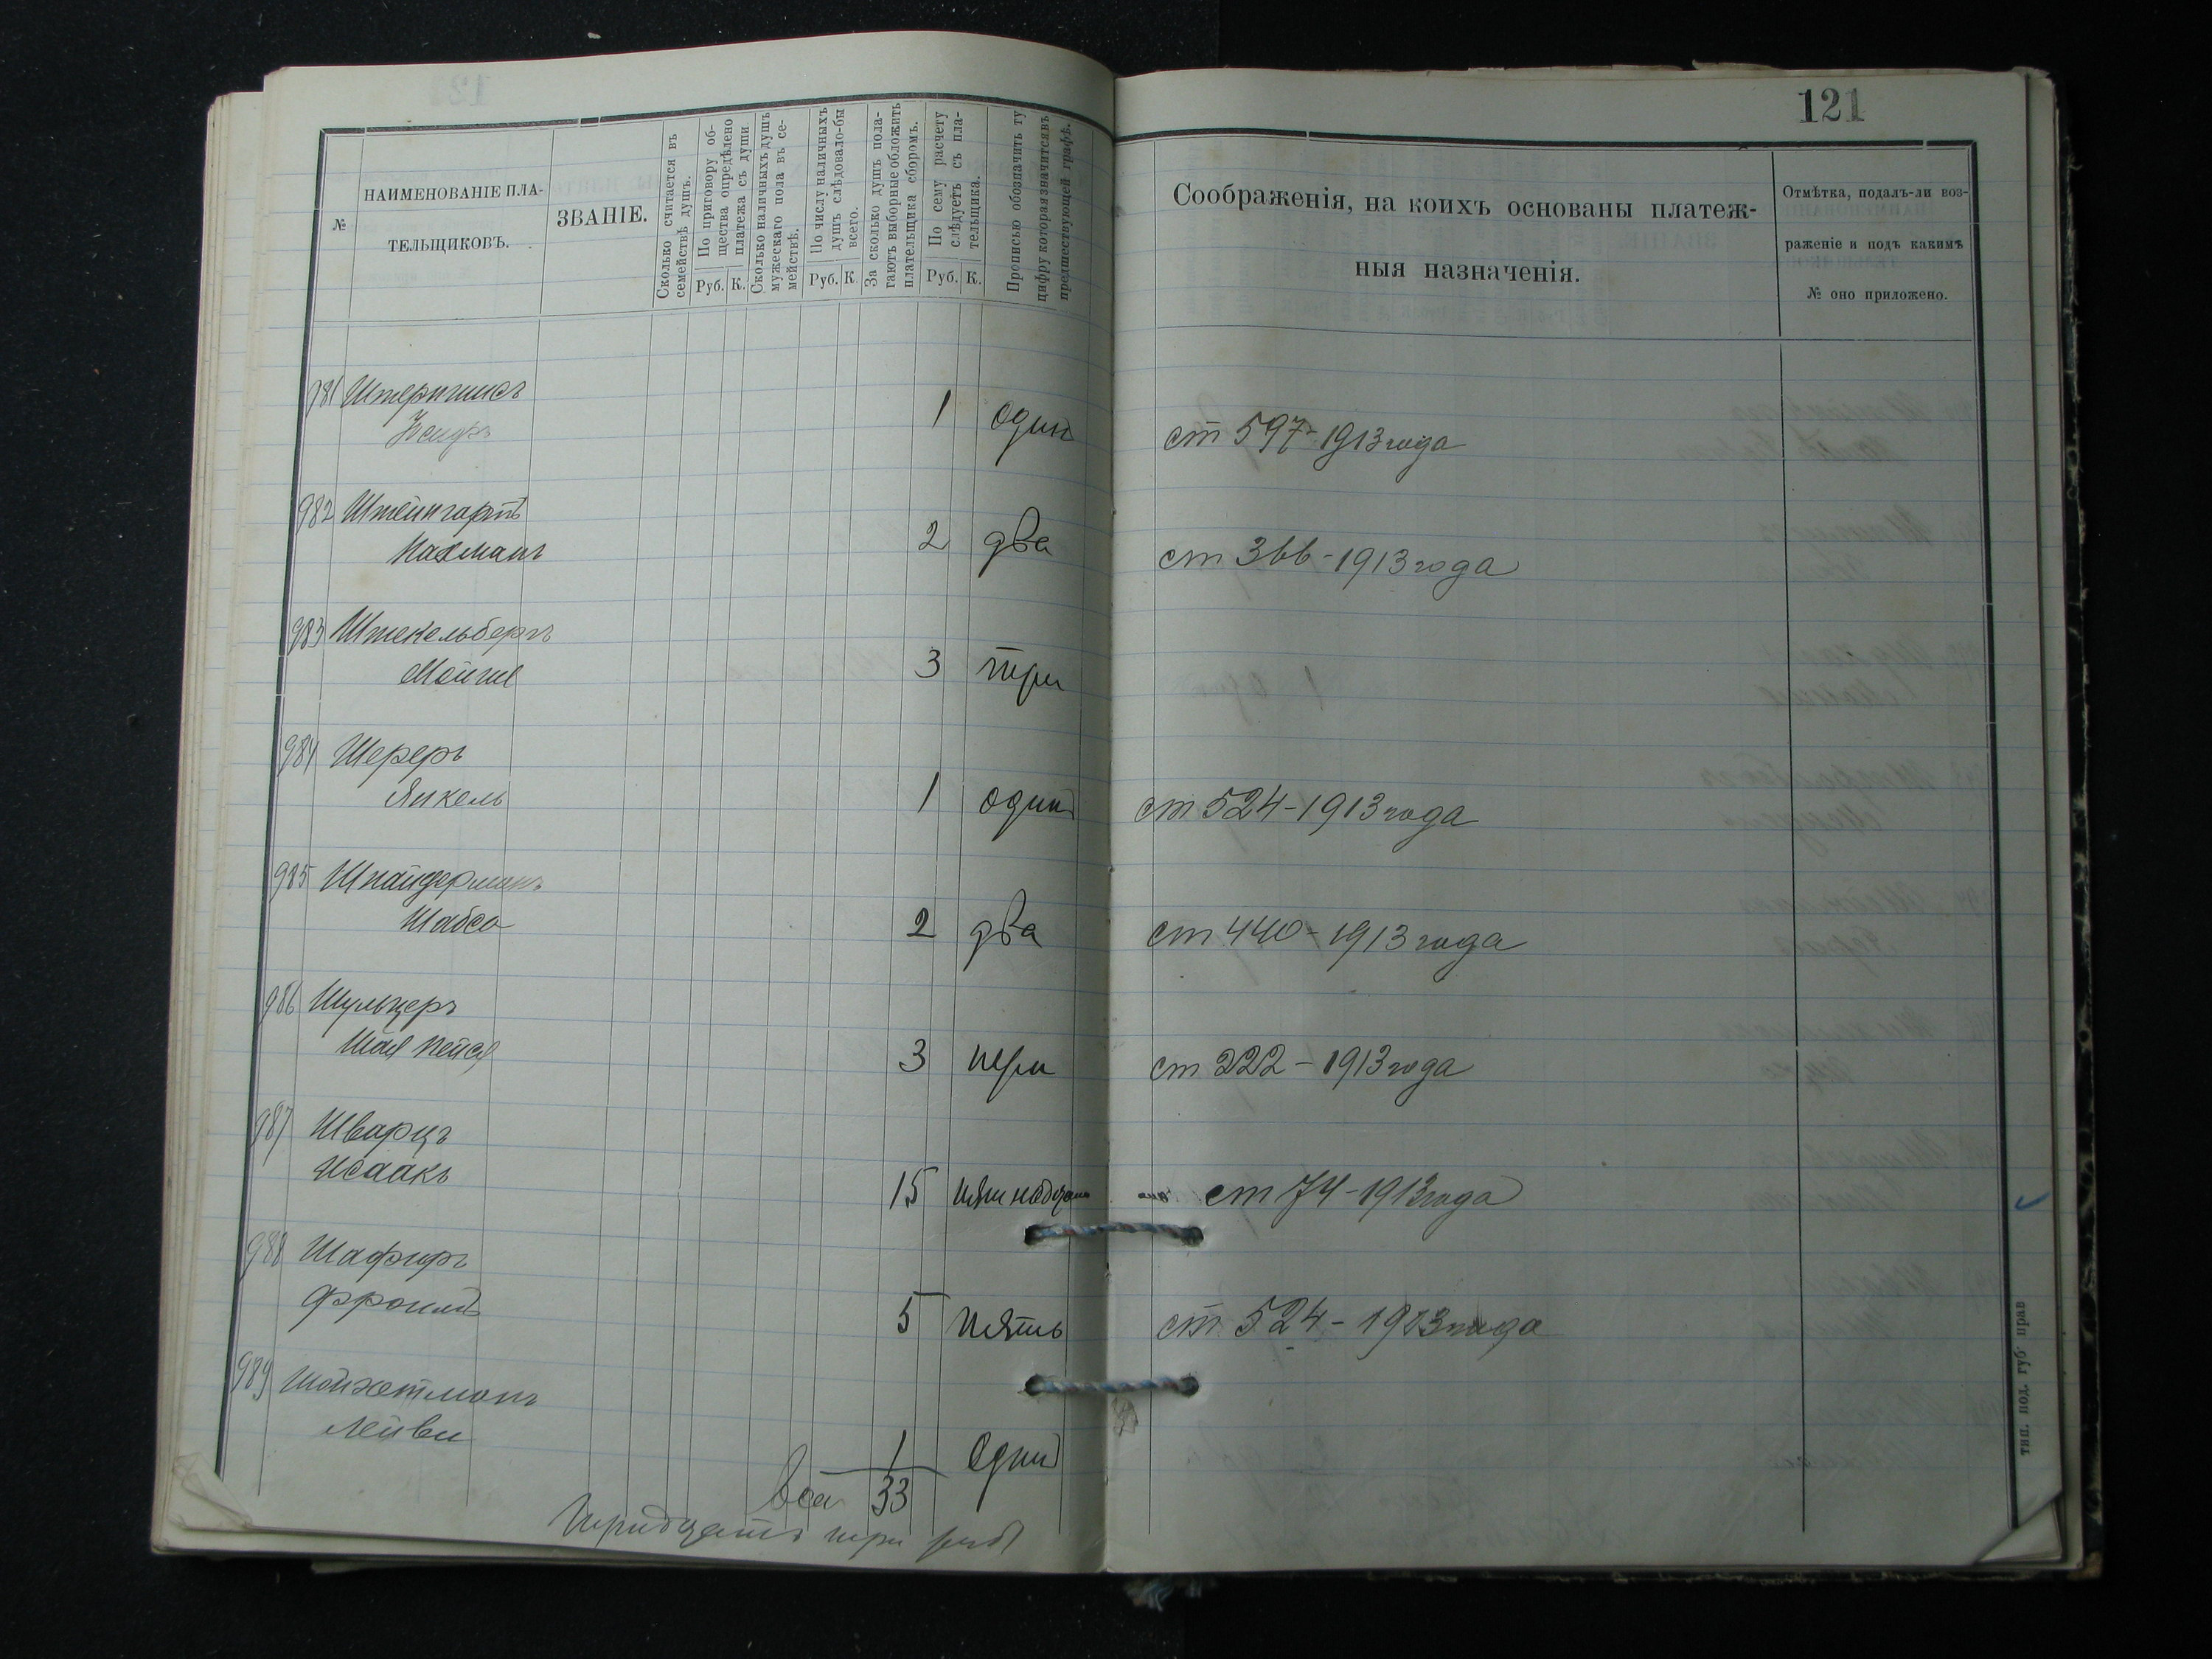 121
№
НАИМЕНОВАНІЕ ПЛА-
ТЕЛЬЩИКОВЪ.
ЗВАНІЕ.
Сколько считается въ
семействѣ душъ.
По приговору об-
щества опредѣлено
платежа съ души.
Руб. К.
Сколько наличныхъ душъ
мужескаго пола въ се-
мействѣ.
По числу наличныхъ
душъ слѣдовало-бы
всего.
Руб. К.
За сколько душъ пола-
гаютъ выборные обложить
плательщика сборомъ.
По сему расчету
слѣдуетъ съ пла-
тельщика.
Руб. К.
Прописью обозначить ту
цифру которая значится въ
предшествующей графѣ.
Соображенія, на коихъ основаны платеж-
ныя назначенія.
Отмѣтка, подалъ-ли воз-
раженіе и подъ какимъ
№ оно приложено.
981
1 один ст 597-1913 года
982 Штейнгартъ
Нахманъ 2 два ст 366-1913 года
983 Штекельбергъ
Мойше 3 три
984 Шереръ
Янкель 1 один ст 524-1913 года
985 Шпайдерманъ
Шабса 2 два ст 440-1913 года
986 Шульцеръ
Шая Пейся 3 три ст 222-1913 года
987 Шварцъ
Исаакъ 15 ст 74-1913 года
988 Шафиръ
Фроимъ 5 пять ст 524-1913 года
989 Шойхетманъ
Лейви 1 один
33
Тридцать три руб
тип. под. губ прав